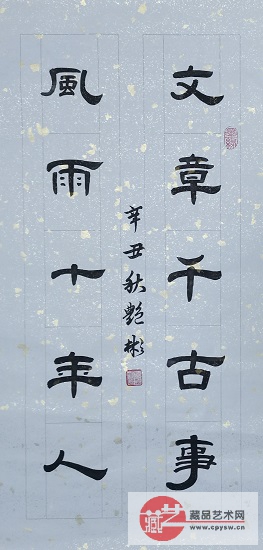 文章千古事
風雨十年人
辛丑秋艷彬
藏品艺术网
www.cpysw.cn